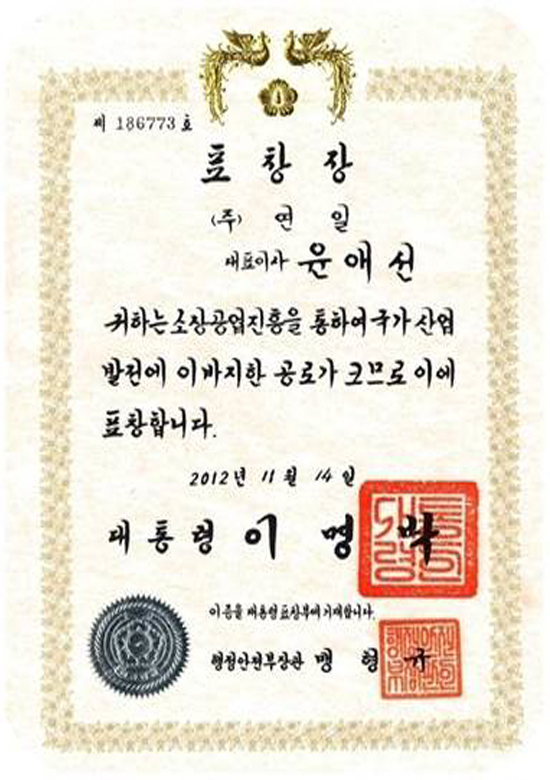 제 186773 호
표 창 장
(주) 연 일
대표이사 윤 애 선
귀하는 소상공업진흥을 통하여 국가 산업
발전에 이바지한 공로가 크므로 이에
표창합니다.
2012년 11월 14일
대통령 이 명 박
대통령
이 증을 대통령 표창부에 기재합니다.
행정안전부장관 맹 형 규